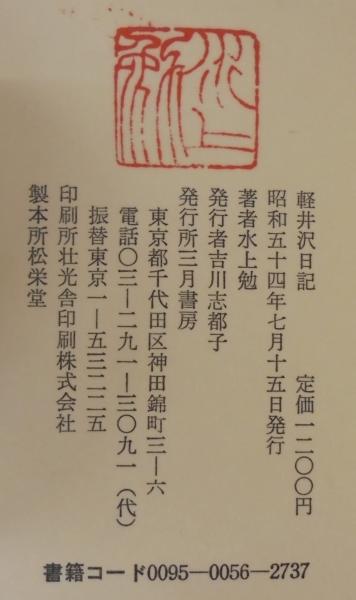 軽井沢日記　定価一二〇〇円
昭和五十四年七月十五日発行
著者水上勉
発行者吉川志都子
発行所三月書房
東京都千代田区神田錦町三―六
電話〇三―二九一―三〇九一（代）
振替東京一―五三二二五
印刷所壮光舎印刷株式会社
製本所松栄堂
書籍コード0095―0056―2737